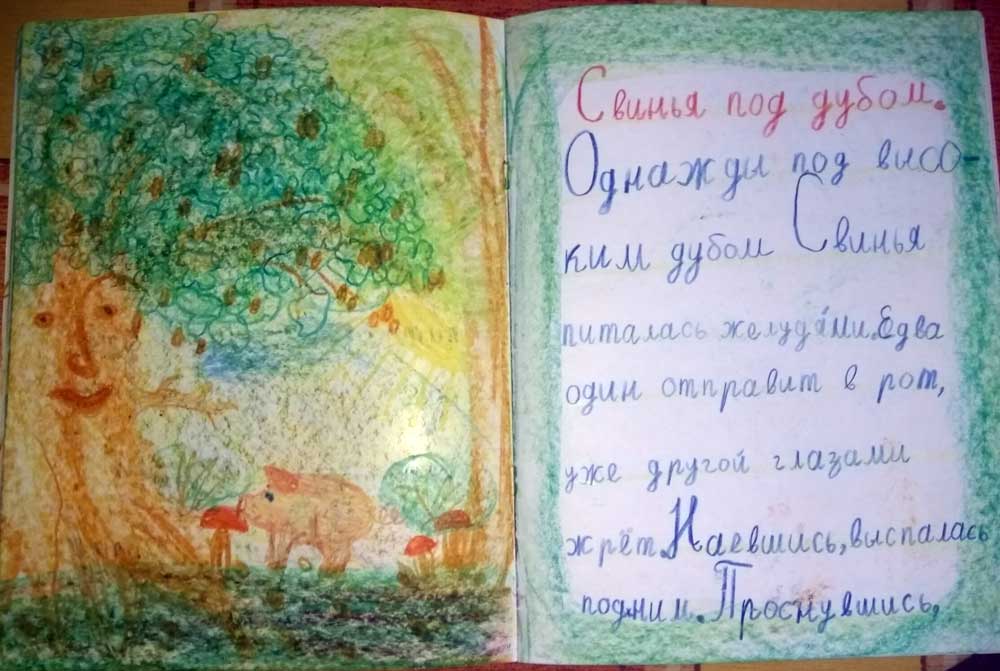 Свинья под дубом.
Однажды под высо-
ким дубом Свинья
питалась желуда́ми. Едва
один отправит в рот,
уже другой глазами
жрёт. Наевшись, выспалась
под ним. Проснувшись,